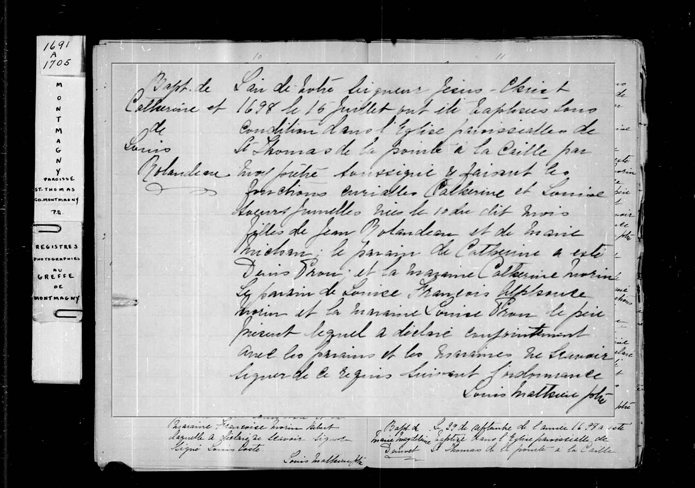 1691
A
1705
MONTMAGNY
PAROISSE
ST. THOMAS
CO. MONTMAGNY
REGISTRES
PHOTOGRAPHIES
AU
GREFFE
DE
MONTMAGNY
Bapt. de
Catherine et
de
Louise
Rolandeau
L'an de Notre Seigneur Jesus-Christ
1698 le 15 Juillet ont été baptisées sous
condition dans l'Eglise paroissialle de
St Thomas de la pointe à la Caille par
moy prêtre soussigné et faisant les
fonctions curialles Catherine et Louise
soeurs jumelles nées le 10 du dit mois
filles de Jean Rolandeau et de Marie
Michau; le parain de Catherine a esté
Denis Prou et la maraine Catherine morin
le parain de Louise François Alphonse
morin et la maraine Louise Prou le père
présent lequel a déclaré conjointement
avec les parains et les maraines ne scavoir
signer de ce requis suivant l'ordonnance
Louis Mathieu ptre
La maraine Françoise morin
laquelle a déclaré ne scavoir signer
Signé Louis Coste
Louis Mathieu ptre
Bapt. d
Marie
Le 29 de septembre de l'année 1698 a esté
baptisé dans l'Eglise paroissialle de
St Thomas de la pointe à la Caille